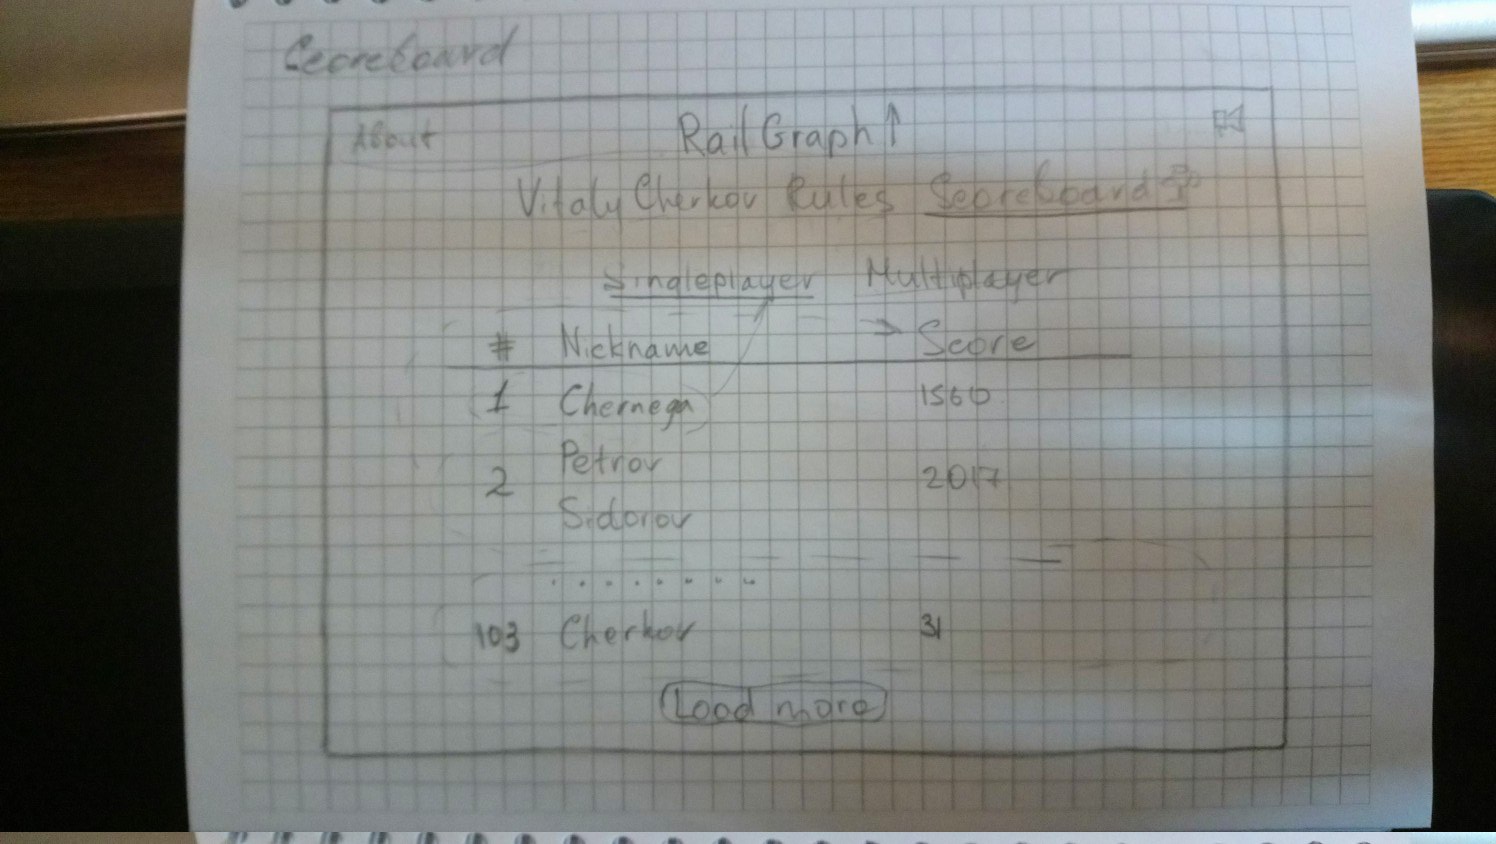 Scoreboard
About RailGraph↑
Vitaly Cherkov Rules Scoreboard
Singleplayer Multiplayer
# Nickname → Score
1 Chernega 1560
Petrov
2 2017
Sidorov
. . . . . . . .
103 Cherkov 31
Load more